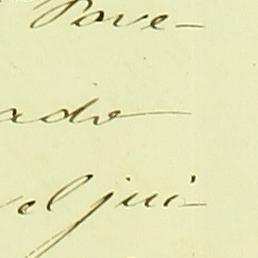 Pove-
ado
el jui-